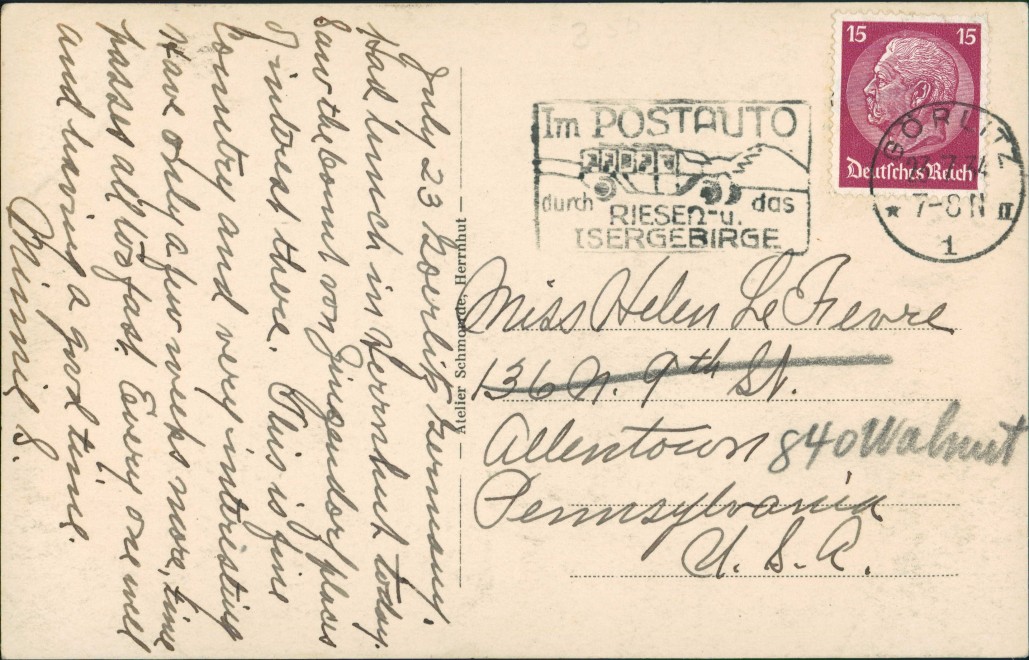 July 23 Goerlitz Germany.
Had lunch in Herrnhut today.
Saw the bount von Zinzendorf places
of interest there. This is fine
Country and very interesting
Have only a few weeks more, time
passes all too fast. Every one well
and having a good time.
Minnie S.
Atelier Schmorrde, Herrnhut
Im POSTAUTO
durch das
RIESEN- u.
ISERGEBIRGE
15 15
Deutsches Reich
GÖRLITZ
23.7.34
★ 7-8 N II
1
Miss Helen Le Fevre
136 N. 9th St.
Allentown 840 Walnut
Pennsylvania
U. S. A.